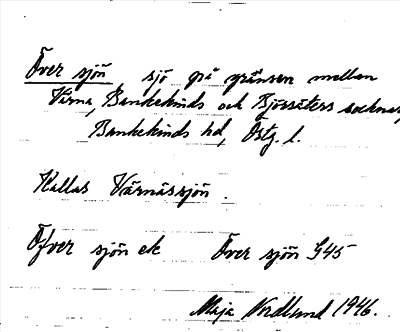 Över sjön, sjö på gränsen mellan
Värna, Bankekinds och Björsäters socknar,
Bankekinds hd, Östg. l.
Kallas Värnässjön.
Öfver sjön ek Över sjön G45
Maja Nordlund 1946.